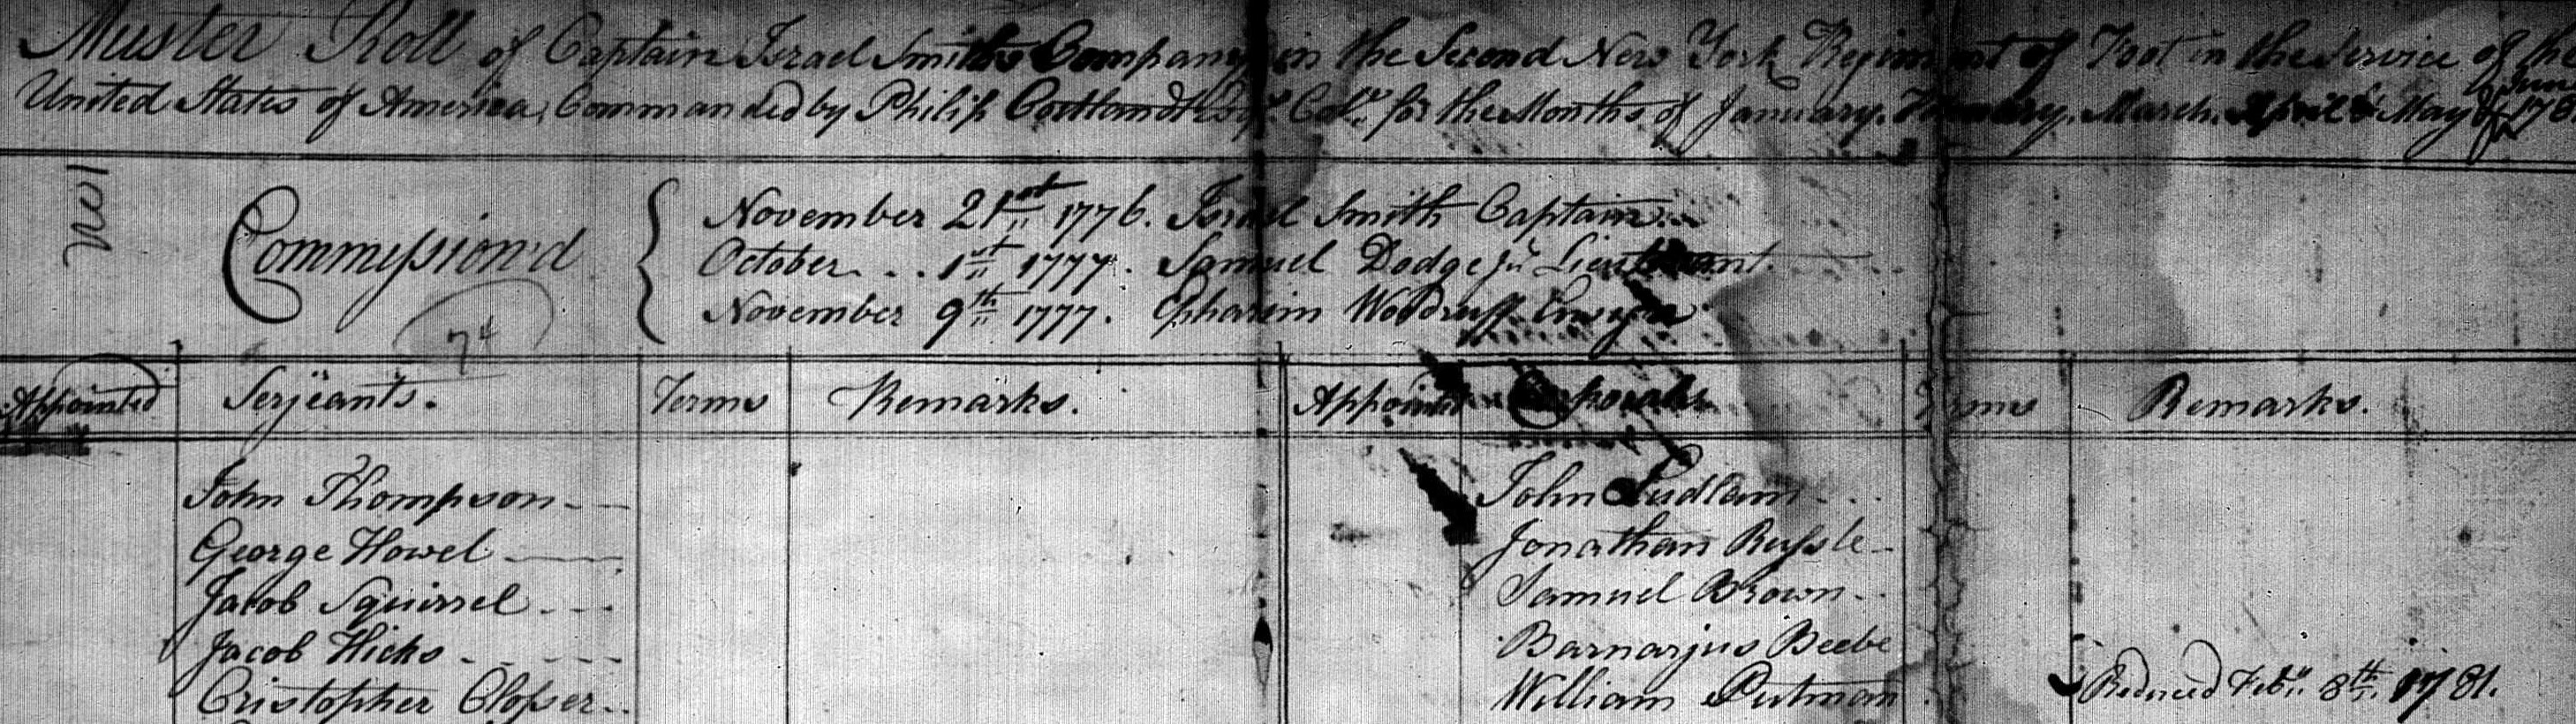 Muster Roll of Captain Israel Smiths Company in the Second New York Regiment of Foot in the Service of the
United States of America, Commanded by Philip Cortlandt Esqr. Colo. for the Months of January, February, March, April & May & June 178
No 1
Commissiond
November 21st 1776. Israel Smith Captain.
October . . 1st 1777. Samuel Dodge jr Lieutenant.
November 9th 1777. Epharim Woodruff Ensign
74
Appointed Serjeants. Terms Remarks. Appointed Corporals Terms Remarks.
John Thompson John Ludlam
George Howel Jonathan Russle
Jacob Squirrel Samuel Brown
Jacob Hicks Barnarjus Beebe
Cristopher Closser William Putman Reduced Feby. 8th. 1781.